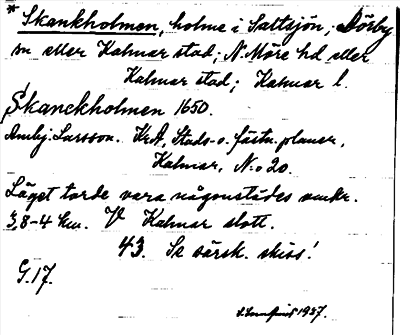 * Skankholmen, holme i Saltsjön; Dörby
sn eller Kalmar stad; N. Möre hd eller
Kalmar stad; Kalmar l.
Skanckholmen 1650.
Anhj. Larsson. KrA, Stads- o. fästn.planer,
Kalmar, N:o 20.
Läget torde vara någonstädes omkr.
3,8-4 km. V Kalmar slott.
43. Se särsk. skiss!
G.17.
1937.